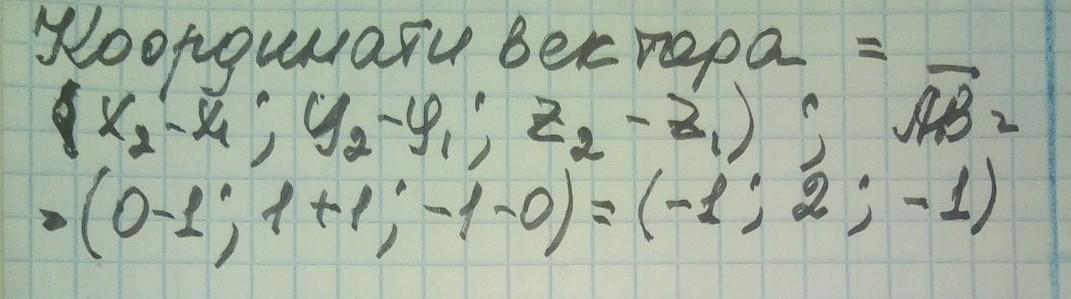 Координати вектара =
(x₂-x₁; y₂-y₁; z₂-z₁); A͞B͞=
=(0-1; 1+1; -1-0)=(-1; 2; -1)